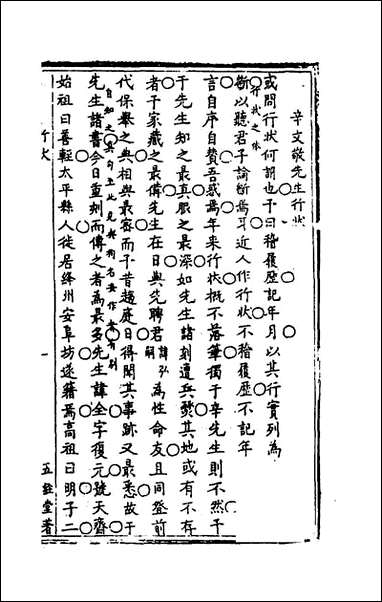 辛文敬先生行狀
或問行狀何昉也予曰稽履歷記年月以其行實列為
行狀之體
斷以聽君子論斷焉耳近人作行狀不稽履歷不記年
言自序自贊吾惑焉年来行狀概不落筆獨于辛先生則不然予
于先生知之最真夙之最深如先生諸刻遭兵燹其地或有不存
者予家藏之最備先生在日與先聘君諱弘嗣為性命友且同登前
代保舉之典相與最密而予昔趨庭日得聞其事跡又最悉故于
先生諸書今日重刻而傳之者為最多先生諱全字復元號天齋
始祖曰善輕太平縣人徙居絳州安阜坊遂籍焉高祖曰明子二
行狀
一
五經堂著